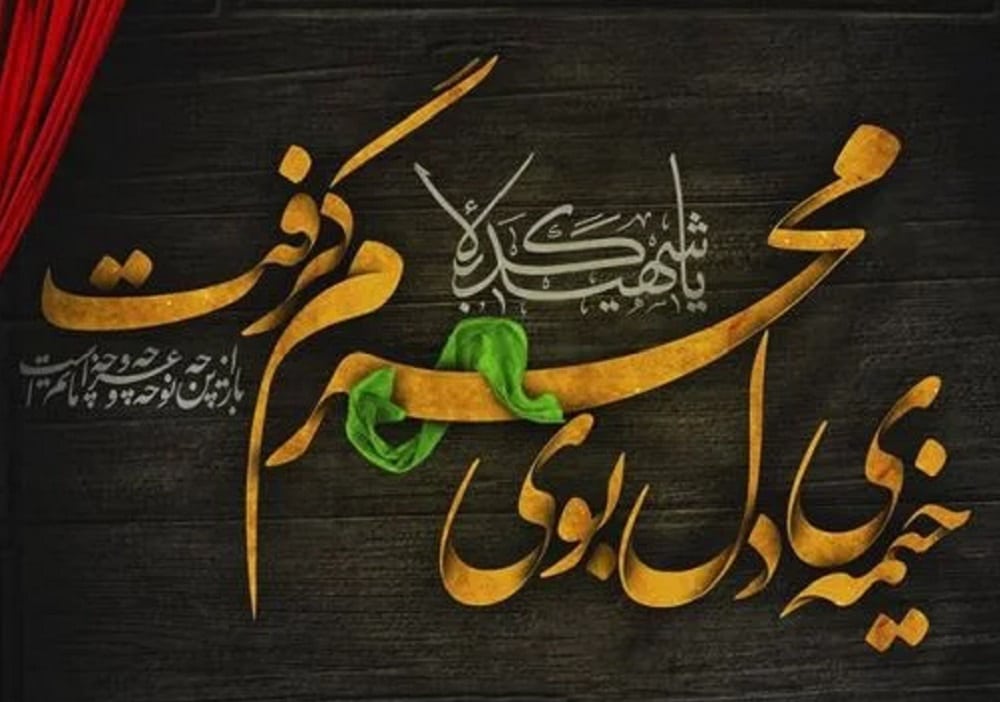 یا شهید کربلا
خیمه‌ی دل بوی محرم گرفت
باز این چه نوحه و چه عزا و چه ماتم است